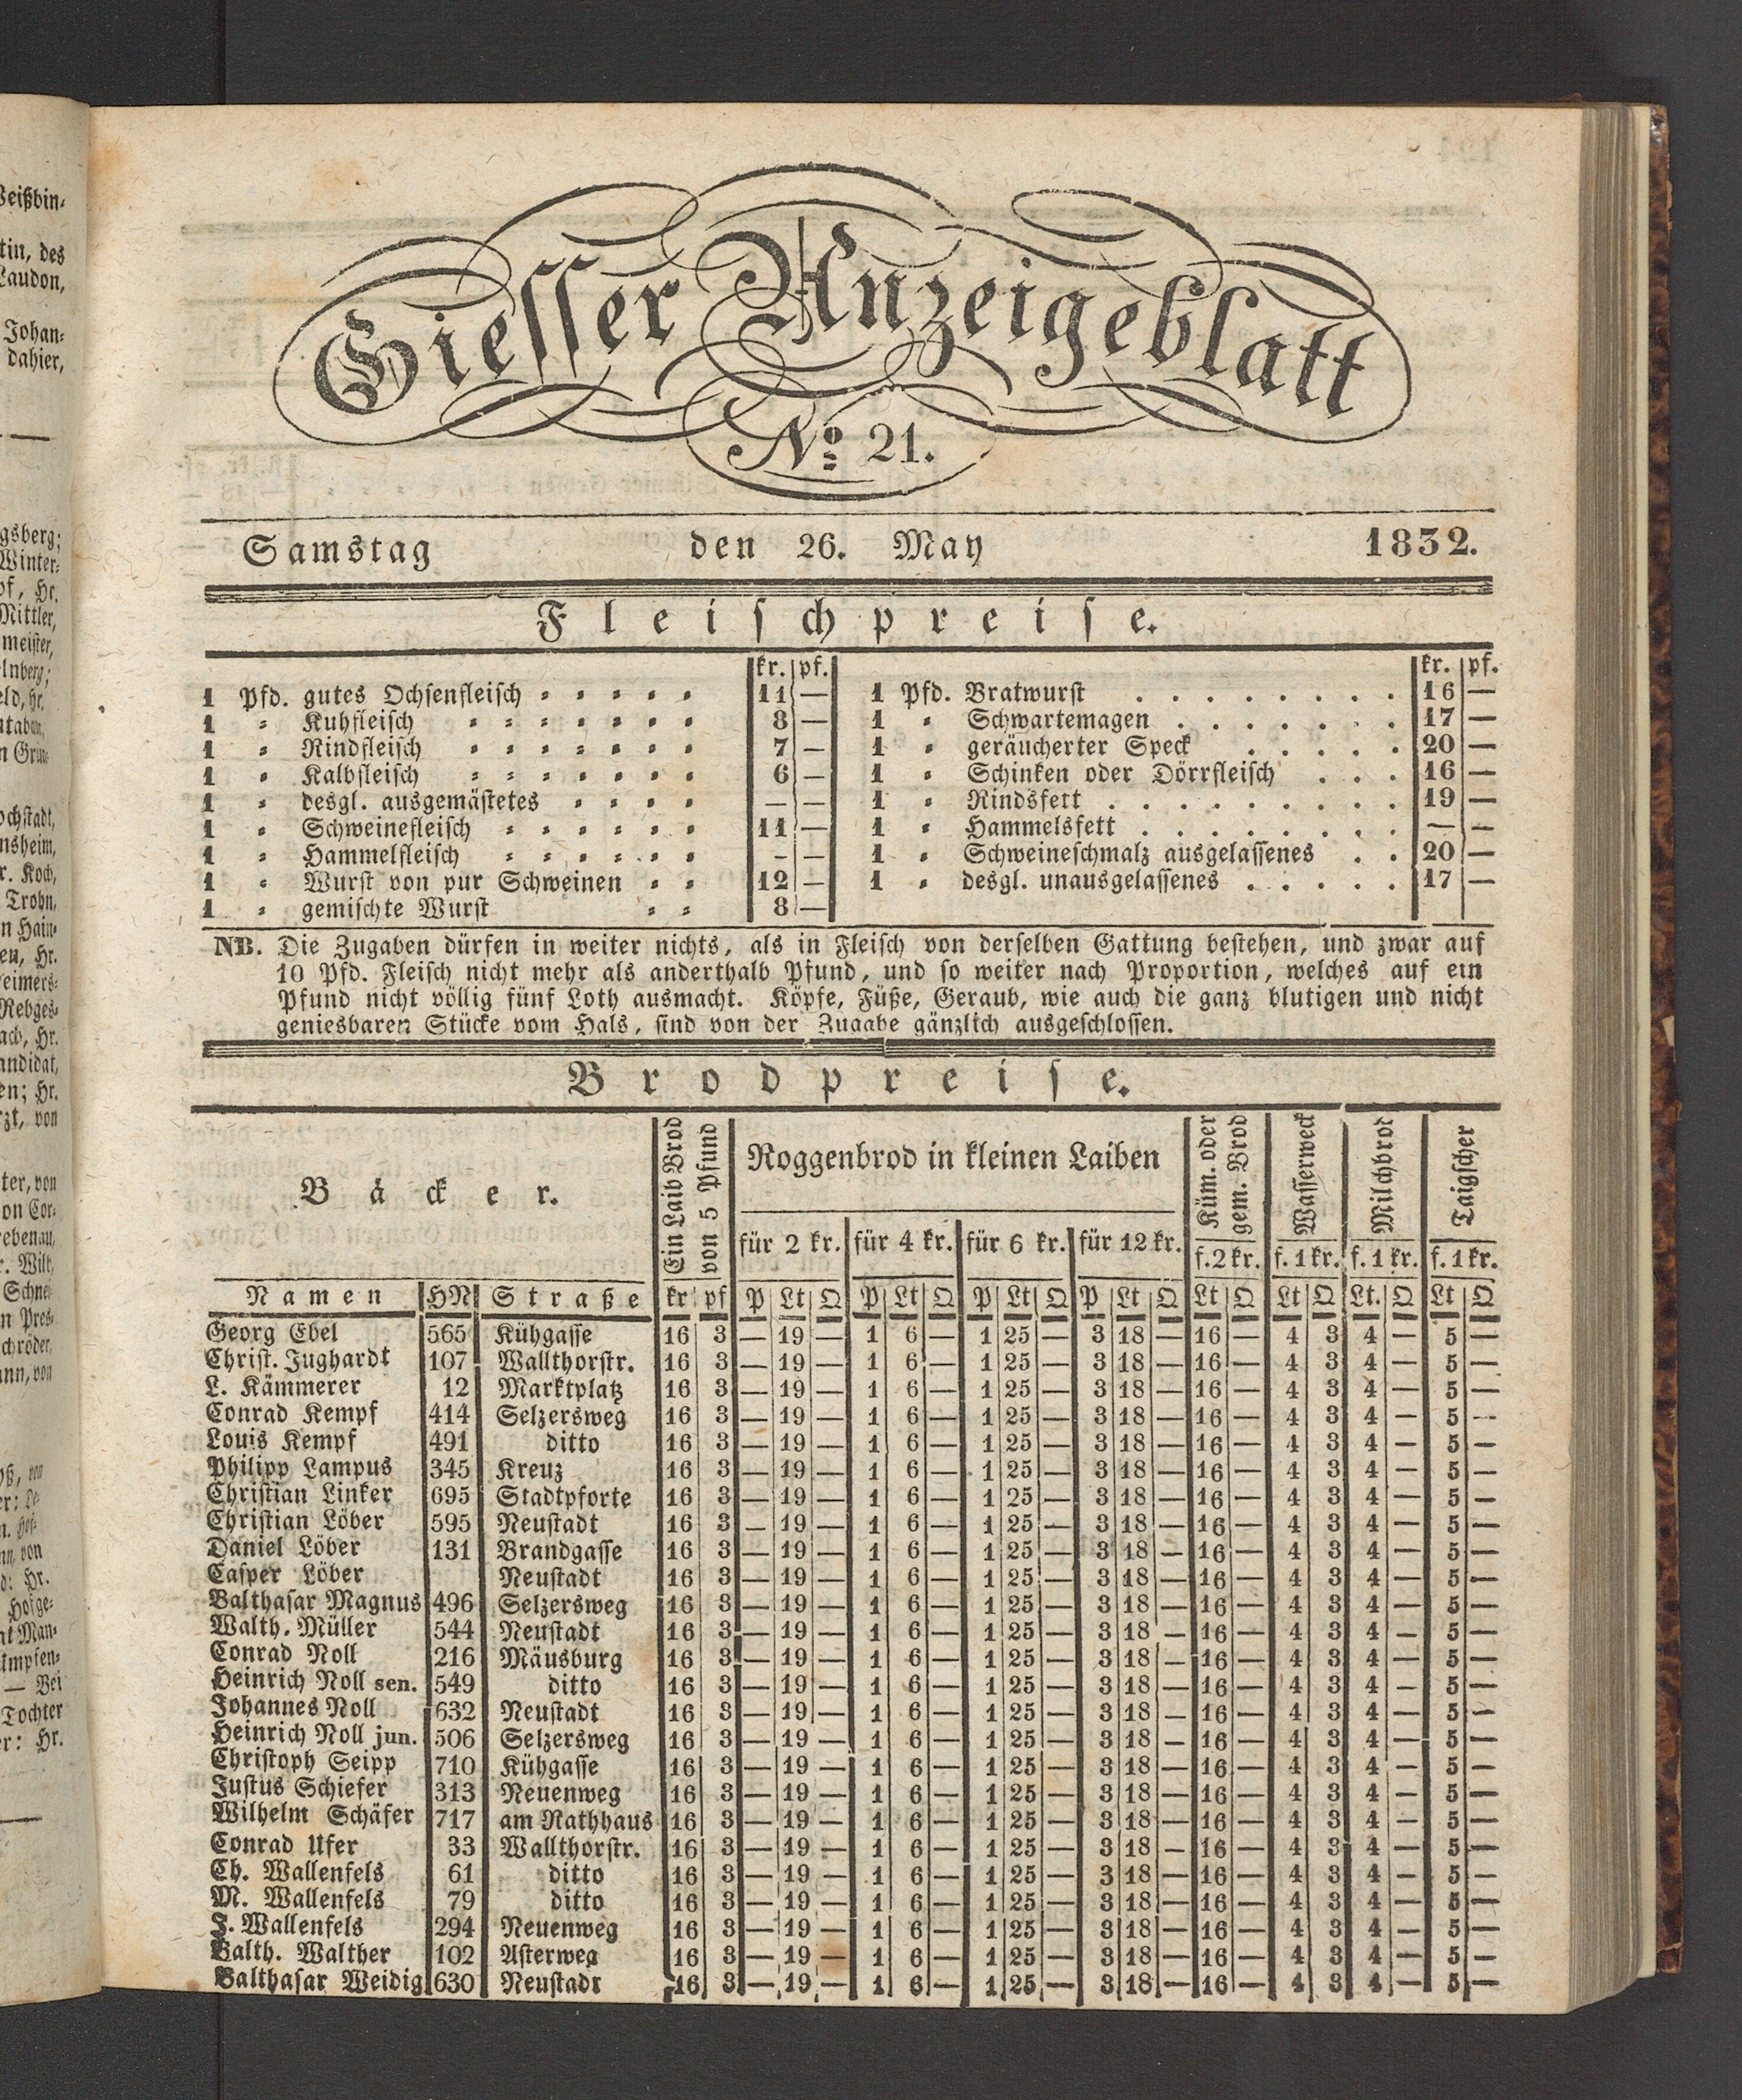 Giesser Anzeigeblatt
No. 21.
Samstag den 26. May 1832.
Fleischpreise.
kr. pf.
1 Pfd. gutes Ochsenfleisch 11 —
1 " Kuhfleisch 8 —
1 " Rindfleisch 7 —
1 " Kalbfleisch 6 —
1 " desgl. ausgemästetes — —
1 " Schweinefleisch 11 —
1 " Hammelfleisch — —
1 " Wurst von pur Schweinen 12 —
1 " gemischte Wurst 8 —
kr. pf.
1 Pfd. Bratwurst 16 —
1 " Schwartemagen 17 —
1 " geräucherter Speck 20 —
1 " Schinken oder Dörrfleisch 16 —
1 " Rindsfett 19 —
1 " Hammelsfett — —
1 " Schweineschmalz ausgelassenes 20 —
1 " desgl. unausgelassenes 17 —
NB. Die Zugaben dürfen in weiter nichts, als in Fleisch von derselben Gattung bestehen, und zwar auf
10 Pfd. Fleisch nicht mehr als anderthalb Pfund, und so weiter nach Proportion, welches auf ein
Pfund nicht völlig fünf Loth ausmacht. Köpfe, Füße, Geraub, wie auch die ganz blutigen und nicht
geniesbaren Stücke vom Hals, sind von der Zugabe gänzlich ausgeschlossen.
Brodpreise.
Bäcker.
Ein Laib Brod
von 5 Pfund
Roggenbrod in kleinen Laiben
für 2 kr. für 4 kr. für 6 kr. für 12 kr.
Küm. oder
gem. Brod
f. 2 kr.
Wasserweck
f. 1 kr.
Milchbrod
f. 1 kr.
Taigscher
f. 1 kr.
Namen HN Straße kr pf P Lt Q P Lt Q P Lt Q P Lt Q Lt Q Lt Q Lt. Q Lt Q
Georg Ebel 565 Kühgasse 16 3 — 19 — 1 6 — 1 25 — 3 18 — 16 — 4 3 4 — 5 —
Christ. Jughardt 107 Wallthorstr. 16 3 — 19 — 1 6 — 1 25 — 3 18 — 16 — 4 3 4 — 5 —
L. Kämmerer 12 Marktplatz 16 3 — 19 — 1 6 — 1 25 — 3 18 — 16 — 4 3 4 — 5 —
Conrad Kempf 414 Selzersweg 16 3 — 19 — 1 6 — 1 25 — 3 18 — 16 — 4 3 4 — 5 —
Louis Kempf 491 ditto 16 3 — 19 — 1 6 — 1 25 — 3 18 — 16 — 4 3 4 — 5 —
Philipp Lampus 345 Kreuz 16 3 — 19 — 1 6 — 1 25 — 3 18 — 16 — 4 3 4 — 5 —
Christian Linker 695 Stadtpforte 16 3 — 19 — 1 6 — 1 25 — 3 18 — 16 — 4 3 4 — 5 —
Christian Löber 595 Neustadt 16 3 — 19 — 1 6 — 1 25 — 3 18 — 16 — 4 3 4 — 5 —
Daniel Löber 131 Brandgasse 16 3 — 19 — 1 6 — 1 25 — 3 18 — 16 — 4 3 4 — 5 —
Casper Löber Neustadt 16 3 — 19 — 1 6 — 1 25 — 3 18 — 16 — 4 3 4 — 5 —
Balthasar Magnus 496 Selzersweg 16 3 — 19 — 1 6 — 1 25 — 3 18 — 16 — 4 3 4 — 5 —
Walth. Müller 544 Neustadt 16 3 — 19 — 1 6 — 1 25 — 3 18 — 16 — 4 3 4 — 5 —
Conrad Noll 216 Mäusburg 16 3 — 19 — 1 6 — 1 25 — 3 18 — 16 — 4 3 4 — 5 —
Heinrich Noll sen. 549 ditto 16 3 — 19 — 1 6 — 1 25 — 3 18 — 16 — 4 3 4 — 5 —
Johannes Noll 632 Neustadt 16 3 — 19 — 1 6 — 1 25 — 3 18 — 16 — 4 3 4 — 5 —
Heinrich Noll jun. 506 Selzersweg 16 3 — 19 — 1 6 — 1 25 — 3 18 — 16 — 4 3 4 — 5 —
Christoph Seipp 710 Kühgasse 16 3 — 19 — 1 6 — 1 25 — 3 18 — 16 — 4 3 4 — 5 —
Justus Schiefer 313 Neuenweg 16 3 — 19 — 1 6 — 1 25 — 3 18 — 16 — 4 3 4 — 5 —
Wilhelm Schäfer 717 am Rathhaus 16 3 — 19 — 1 6 — 1 25 — 3 18 — 16 — 4 3 4 — 5 —
Conrad Ufer 33 Wallthorstr. 16 3 — 19 — 1 6 — 1 25 — 3 18 — 16 — 4 3 4 — 5 —
Ch. Wallenfels 61 ditto 16 3 — 19 — 1 6 — 1 25 — 3 18 — 16 — 4 3 4 — 5 —
M. Wallenfels 79 ditto 16 3 — 19 — 1 6 — 1 25 — 3 18 — 16 — 4 3 4 — 5 —
J. Wallenfels 294 Neuenweg 16 3 — 19 — 1 6 — 1 25 — 3 18 — 16 — 4 3 4 — 5 —
Balth. Walther 102 Asterweg 16 3 — 19 — 1 6 — 1 25 — 3 18 — 16 — 4 3 4 — 5 —
Balthasar Weidig 630 Neustadt 16 3 — 19 — 1 6 — 1 25 — 3 18 — 16 — 4 3 4 — 5 —